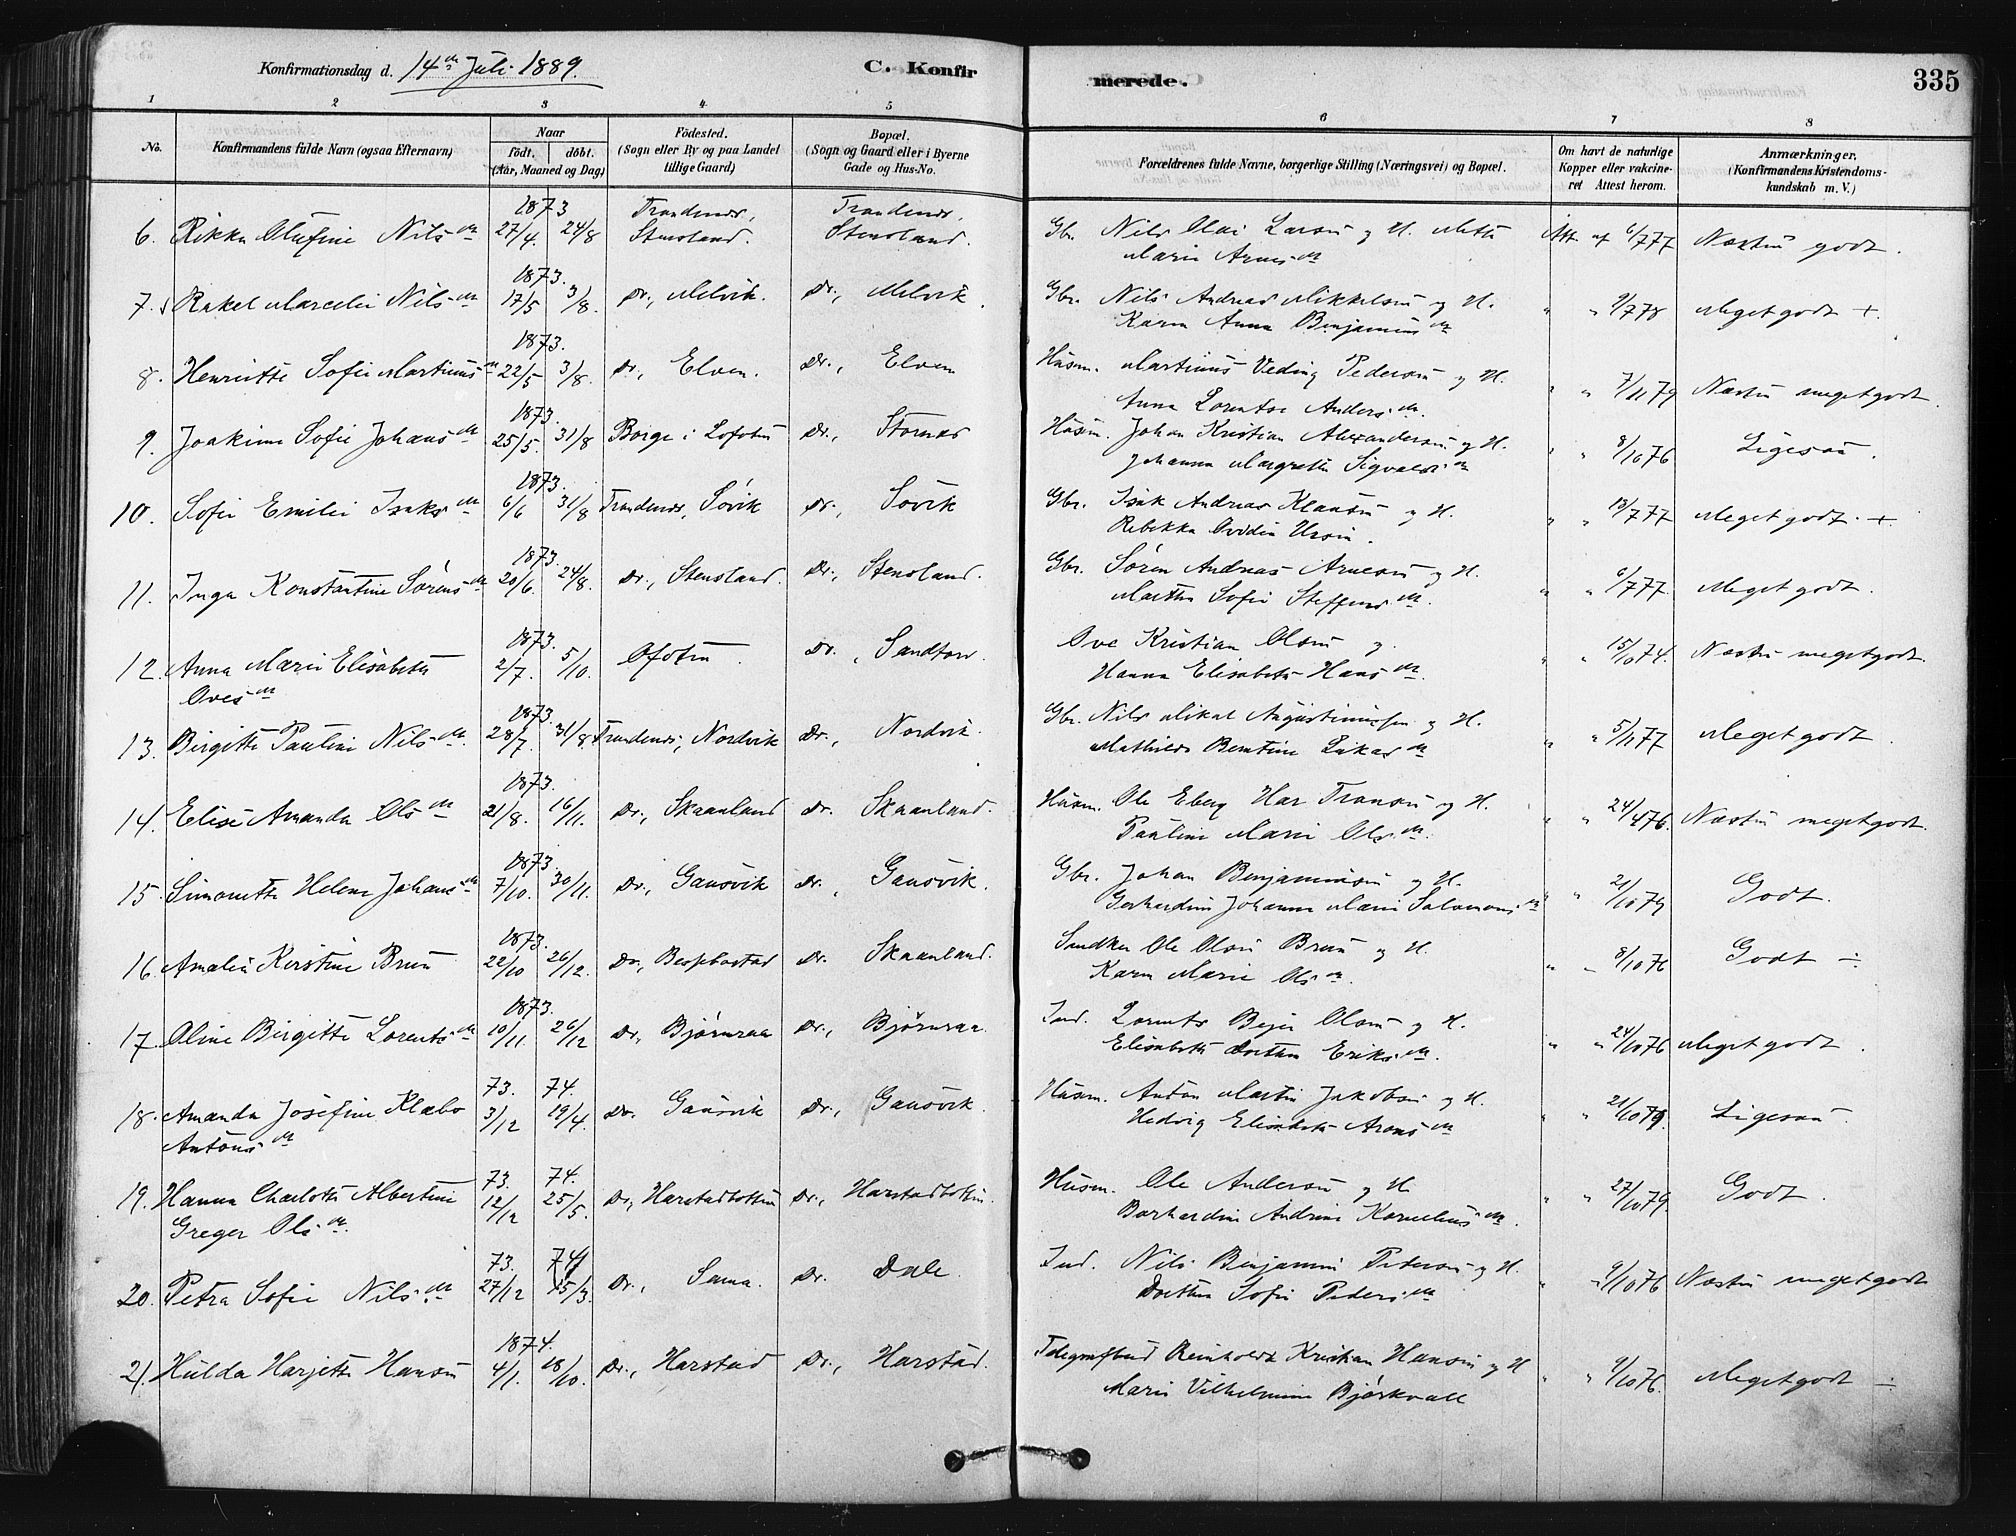 Konfirmationsdag d. 14de Juli 1889. C. Konfirmerede. 335
1 2 3 4 5 6 7 8
No. Konfirmandens fulde Navn (ogsaa Efternavn) Naar født. døbt. (Aar, Maaned og Dag) Födested. (Sogn eller By og paa Landet tillige Gaard) Bopæl. (Sogn og Gaard eller i Byerne Gade og Hus-No. Forældrenes fulde Navne, borgerlige Stilling (Næringsvei) og Bopæl. Om havt de naturlige Kopper eller vakcineret Attest herom. Anmærkninger. (Konfirmandens Kristendomskundskab m. V.)
1873 Trondenes, Trondenes,
6. Rikka Olufine Nilsdr 27/4. 24/8 Stensland. Stensland. Gbr. Nils Olai Larsen og H. Mette Att. af 6/777 Næsten godt.
Marie Arnesdr
1873.
7. Rakel Marcelie Nilsdr 17/5 3/8. Do., Melvik. Do., Melvik. Gbr. Nils Andreas Mikkelsen og H. " " 9/778 Meget godt +.
Karen Anna Benjaminsdr
1873.
8. Henriette Sofie Martinusdr 22/5 3/8. Do, Elven. Do., Elven Husm. Martinus Veding Pedersen og H. " " 7/1179 Næsten meget godt.
Anna Lorentse Andersdr.
1873.
9. Joakime Sofie Johansdr 25/5. 31/8 Borge i Lofoten Do., Stornes Husm. Johan Kristian Alexandersen og H. " " 8/1076 Ligesaa.
Johanna Margrethe
1873.
10. Sofie Emilie Isaksdr 6/6 31/8 Trondenes, Sövik Do., Sövik Gbr. Isak Andreas Klausen og H. " " 13/777 Meget godt. +
Rebekka
1873.
11. Inga Konstantine Sørensdr 20/6. 24/8. Do., Stensland. Do., Stensland. Gbr. Søren Andreas Arnesen og H. " " 6/777. Meget godt.
Marthe Sofie Steffensdr.
1873.
12. Anna Marie Elisabeth 2/7. 5/10. Ofoten. Do., Sandtorv. Ove Kristian Olsen og " " 15/1074. Næsten meget godt.
Ovesdr Hanna Elisabeth Hansdr.
1873.
13. Birgitte Pauline Nilsdr. 28/7. 31/8 Trondenes, Nordvik Do., Nordvik. Gbr. Nils Mikal Augustinussen og H. " " 5/1177 Meget godt.
Mathilde Berntine Lukasdr
1873.
14. Elise Amanda Olsdr 21/8. 16/11. Do., Skaanland Do. Skaanland. Husm. Ole Eberg Har Transen og H. " " 24/476. Næsten meget godt.
Pauline Marie Olsdr.
1873.
15. Simonette Helene Johansdr 7/10. 30/11. Do., Gausvik Do., Gausvik. Gbr. Johan Benjaminsen og H. " " 21/1079 Godt.
Gerhardine Johanna Marie Salomonsdr
1873.
16. Amalie Kirstine Brun 22/10 26/12. Do., Bergebostad Do. Skaanland. Snedker Ole Olsen Brun og H. " " 8/1076 Godt ÷.
Karen Marie Olsdr.
1873.
17. Oline Birgitte Lorentsdr 10/11 26/12 Do., Bjørnraa Do., Bjørnraa. Ind. Lorents Bejer Olsen og H. " " 24/1076 Meget godt.
Elisabeth Dorthea Eriksdr.
73. 74.
18. Amanda Josefine Klæbo 3/12 19/4. Do. Gausvik Do., Gausvik. Husm. Anton Martin Jakobsen og H. " " 21/1079. Ligesaa
Antonsdr Hedvig Elisabeth Aronsdr
73. 74.
19. Hanna Charlotte Albertine 12/12 25/5. Do, Harstadbotten Do., Harstadbotten. Husm. Ole Andersen og H. " " 27/1079. Godt.
Greger Olsdr. Borhardine Andrine Korneliusdr.
73. 74
20. Petra Sofie Nilsdr 27/12 15/3. Do., Sama. Do. Dale. Ind. Nils Benjamin Pedersen og H. " " 9/1076 Næsten meget godt
Dorthea Sofie Pedersdr
1874.
21. Hulda Harjette Hansen 4/1. 18/10. Do., Harstad Do., Harstad. Telegrafbud Reinholdt Kristian Hansen og H " " 9/1076. Meget godt ÷
Marie Vilhelmine Bjørkvall